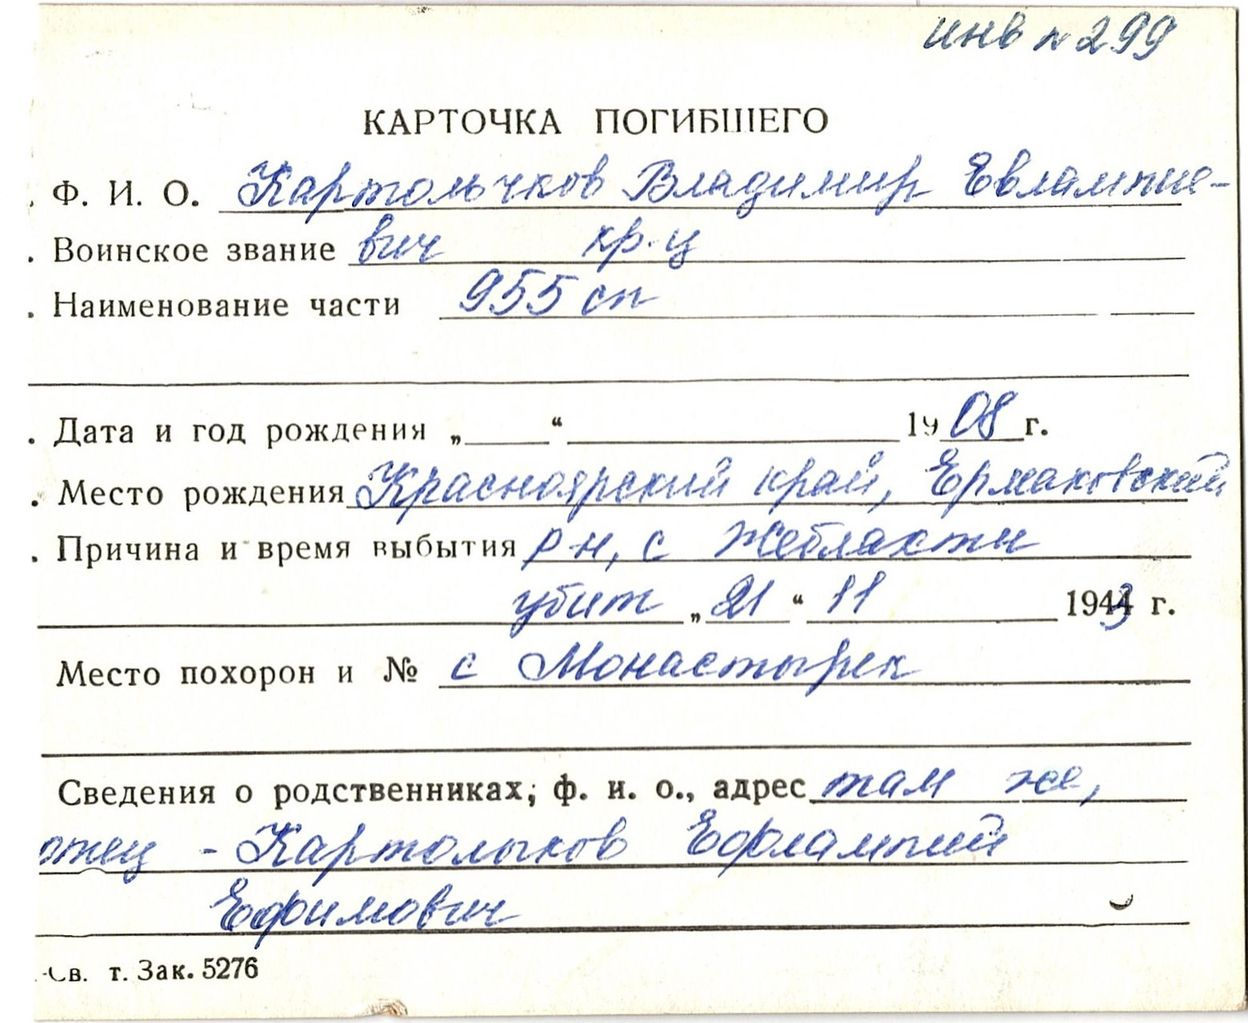 инв № 299
КАРТОЧКА ПОГИБШЕГО
. Ф. И. О. Картольчков Владимир Евлампие-
. Воинское звание вич кр-ц
. Наименование части 955 сп
. Дата и год рождения „ “ 1908 г.
. Место рождения Красноярский край, Ермаковский
. Причина и время выбытия р-н, с Жеблахты
убит „21“ 11 1943 г.
Место похорон и № с Монастырек
Сведения о родственниках; ф. и. о., адрес там же,
отец - Картолыков Ефлампий
Ефимович
-Св. т. Зак. 5276